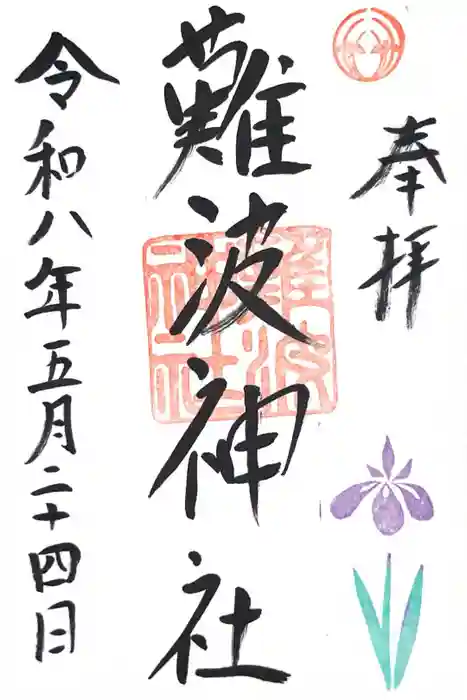 奉拝
難波神社
難波神社
令和八年五月二十四日